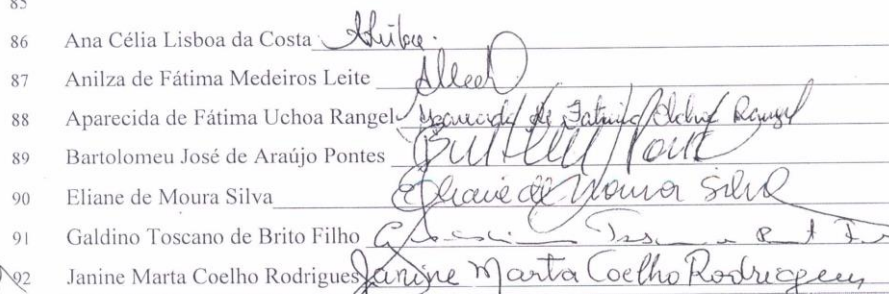 85
86 Ana Célia Lisboa da Costa
87 Anilza de Fátima Medeiros Leite
88 Aparecida de Fátima Uchoa Rangel Aparecida de Fatima Uchoa Rangel
89 Bartolomeu José de Araújo Pontes
90 Eliane de Moura Silva Eliane de Moura Silva
91 Galdino Toscano de Brito Filho
92 Janine Marta Coelho Rodrigues Janine Marta Coelho Rodrigues